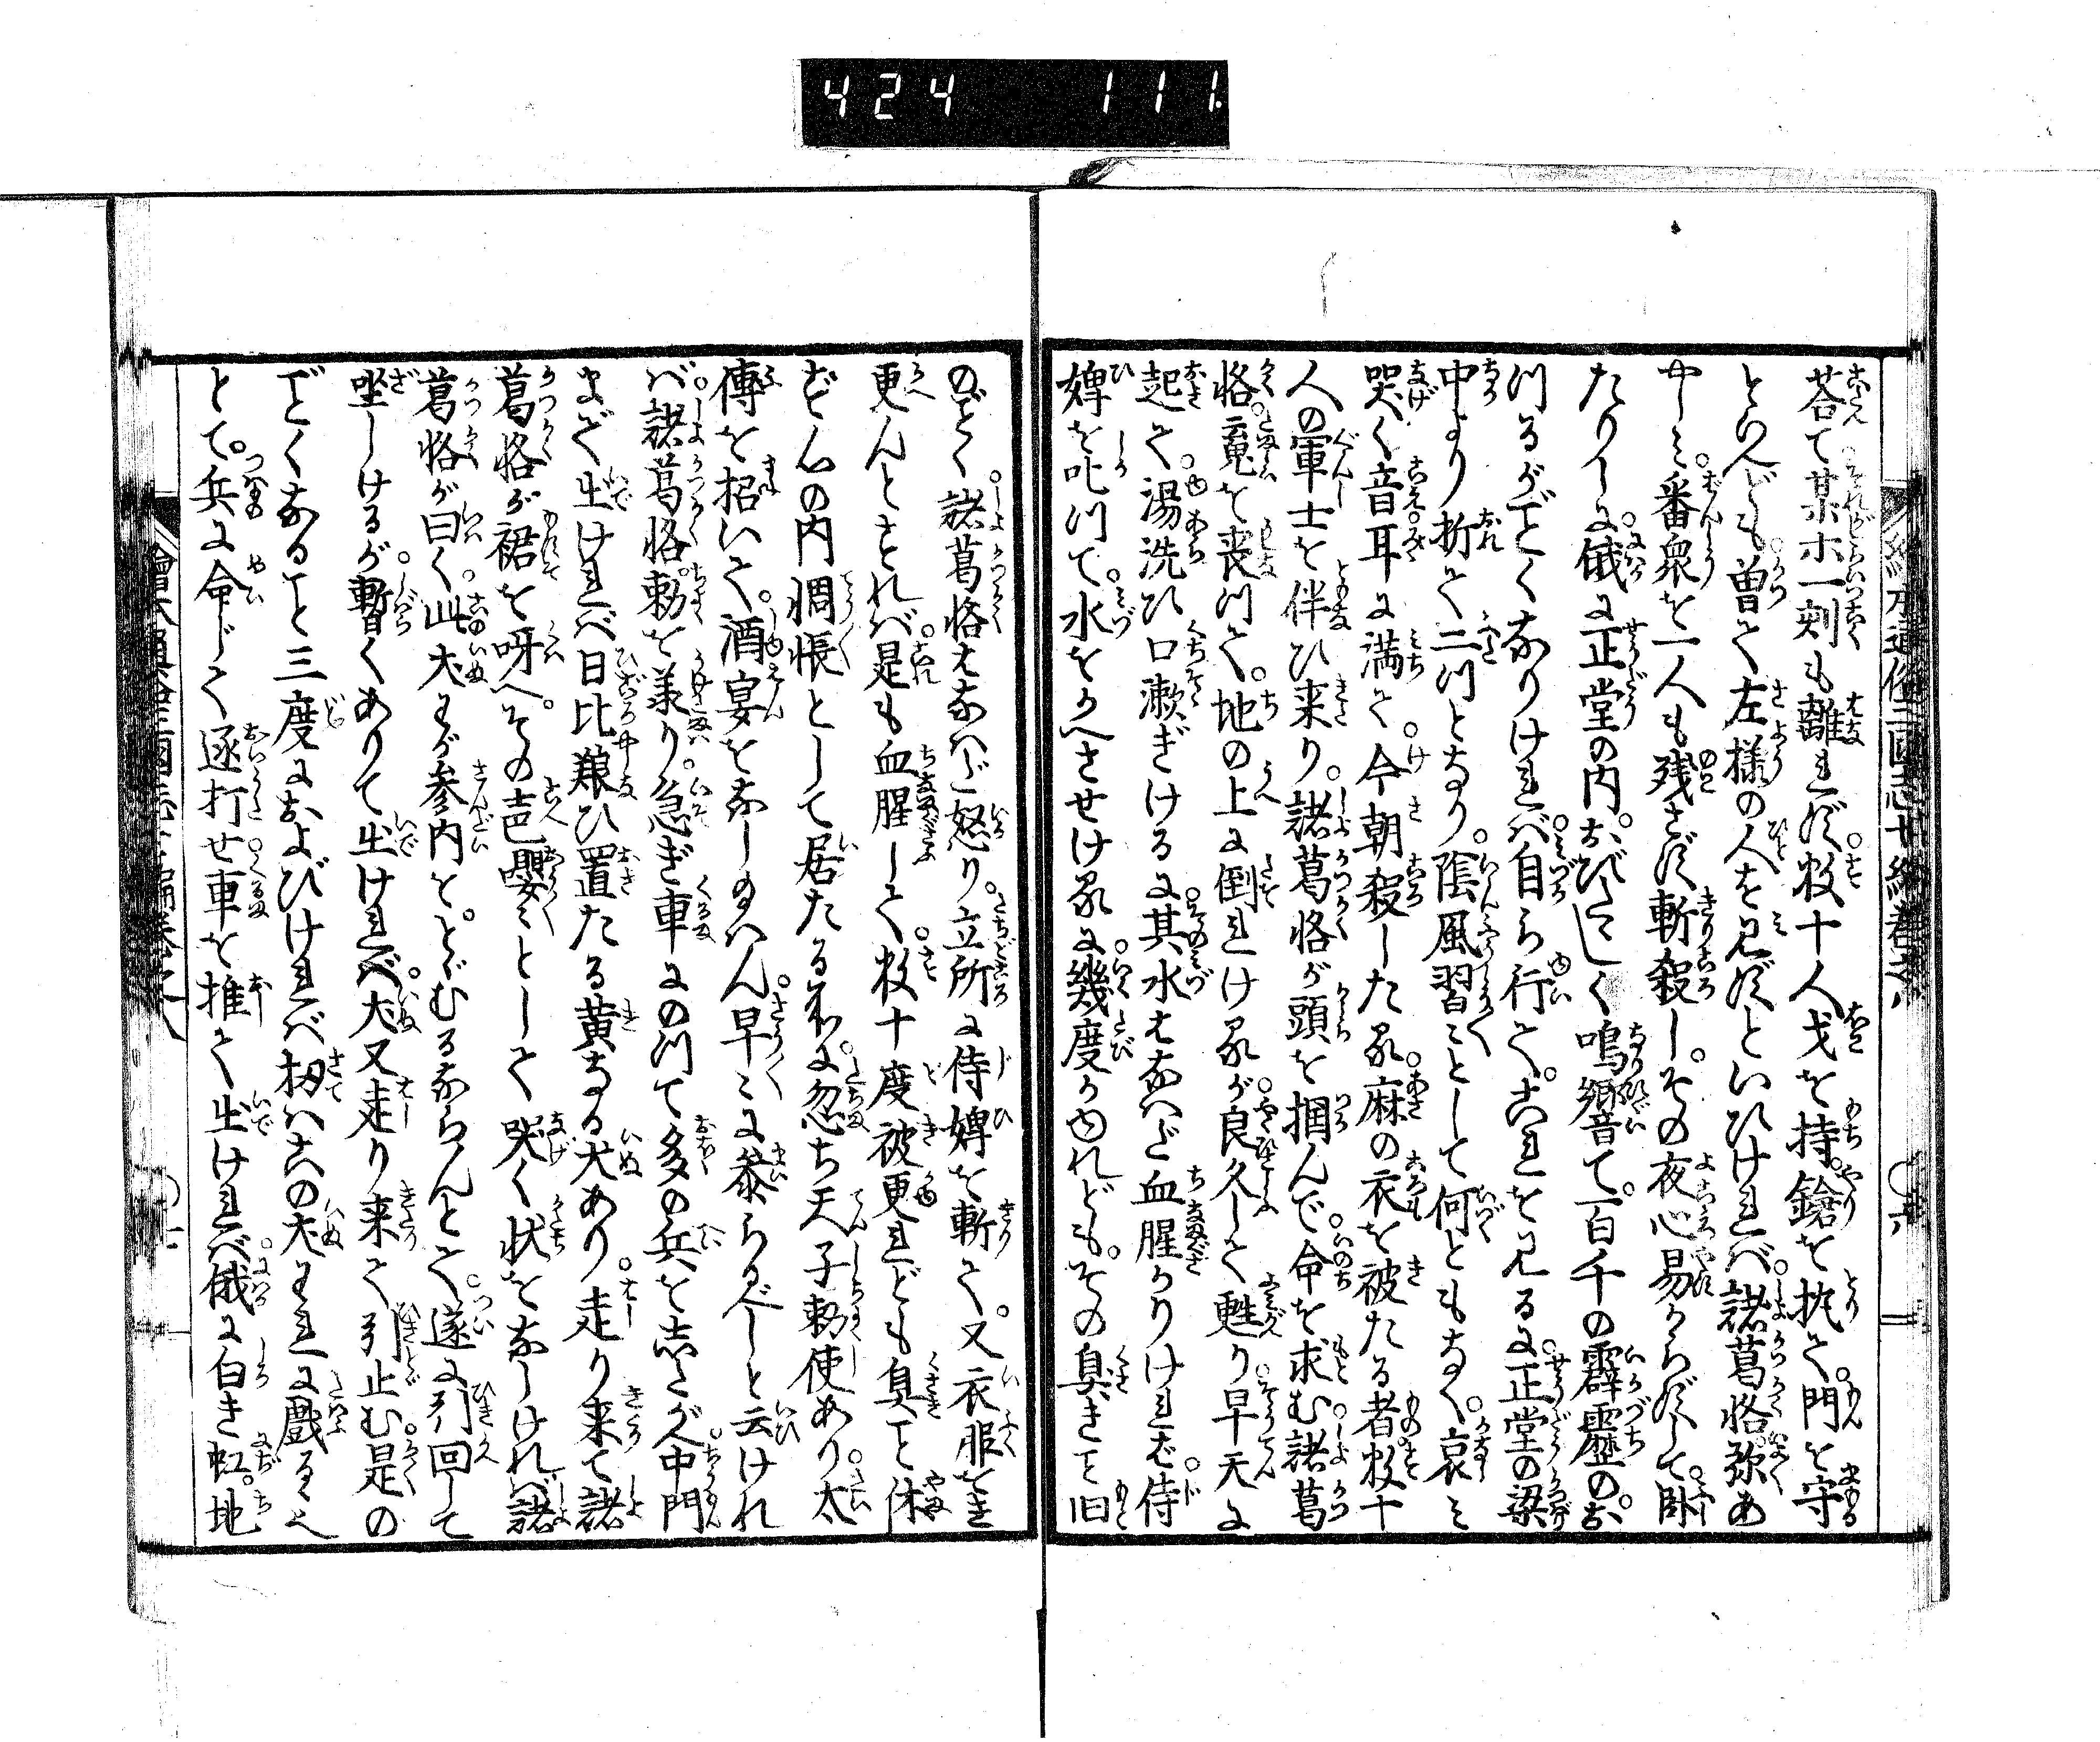 424 111
答て某ホ一刻も離れず数十人戈を持鎗を执て門を守
といへども曽て左様の人を見ずといひければ諸葛恪弥あ
やしみ番衆を一人も残さず斬殺しその夜心易からずして卧
たりしに俄に正堂の内おびたゝしく鳴響て一百千の霹靂のお
つるがごとくなりければ自ら行てこれを見るに正堂の梁
中より折て二つとなり陰風習々として何ともなく哀み
哭く音耳に満て今朝殺した的麻の衣を被たる者数十
人の軍士を伴ひ来り諸葛恪が頭を掴んで命を求む諸葛
恪魂を喪つて地の上に倒れけるが良久して甦り早天に
起て湯洗ひ口漱ぎけるに其水もなほ血腥かりければ侍
婢を叱つて水をかへさせけるに幾度かゆれどもその臭きこと旧
のごとく諸葛恪はなはだ怒り立所に侍婢を斬て又衣服をき
更んとすれば是も血腥して数十度被更れども臭こと休
ず心の内惆悵として居たる所に忽ち天子勅使あり太
傅を招いて酒宴をなし給はん早々に参らるべしと云けれ
ば諸葛恪勅を羕り急ぎ車にのつて多の兵をしたがへ中門
まで出ければ日比䬶ひ置たる黄なる犬あり走り来て諸
葛恪が裾を呀へその声嚶々として哭く状をなしければ諸
葛恪が曰く此犬わが参内をとゞむるならんとて遂に引回して
坐しけるが暫くありて出ければ犬又走り来て引止む是の
ごとくなること三度におよびければ扨はこの犬われに戯るゝと
とて兵に命じて逐打せ車を推て出ければ俄に白き虹地